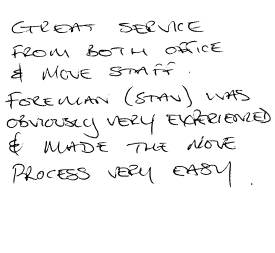 GREAT SERVICE
FROM BOTH OFFICE
& MOVE STAFF.
FOREMAN (STAN) WAS
OBVIOUSLY VERY EXPERIENCED
& MADE THE MOVE
PROCESS VERY EASY.